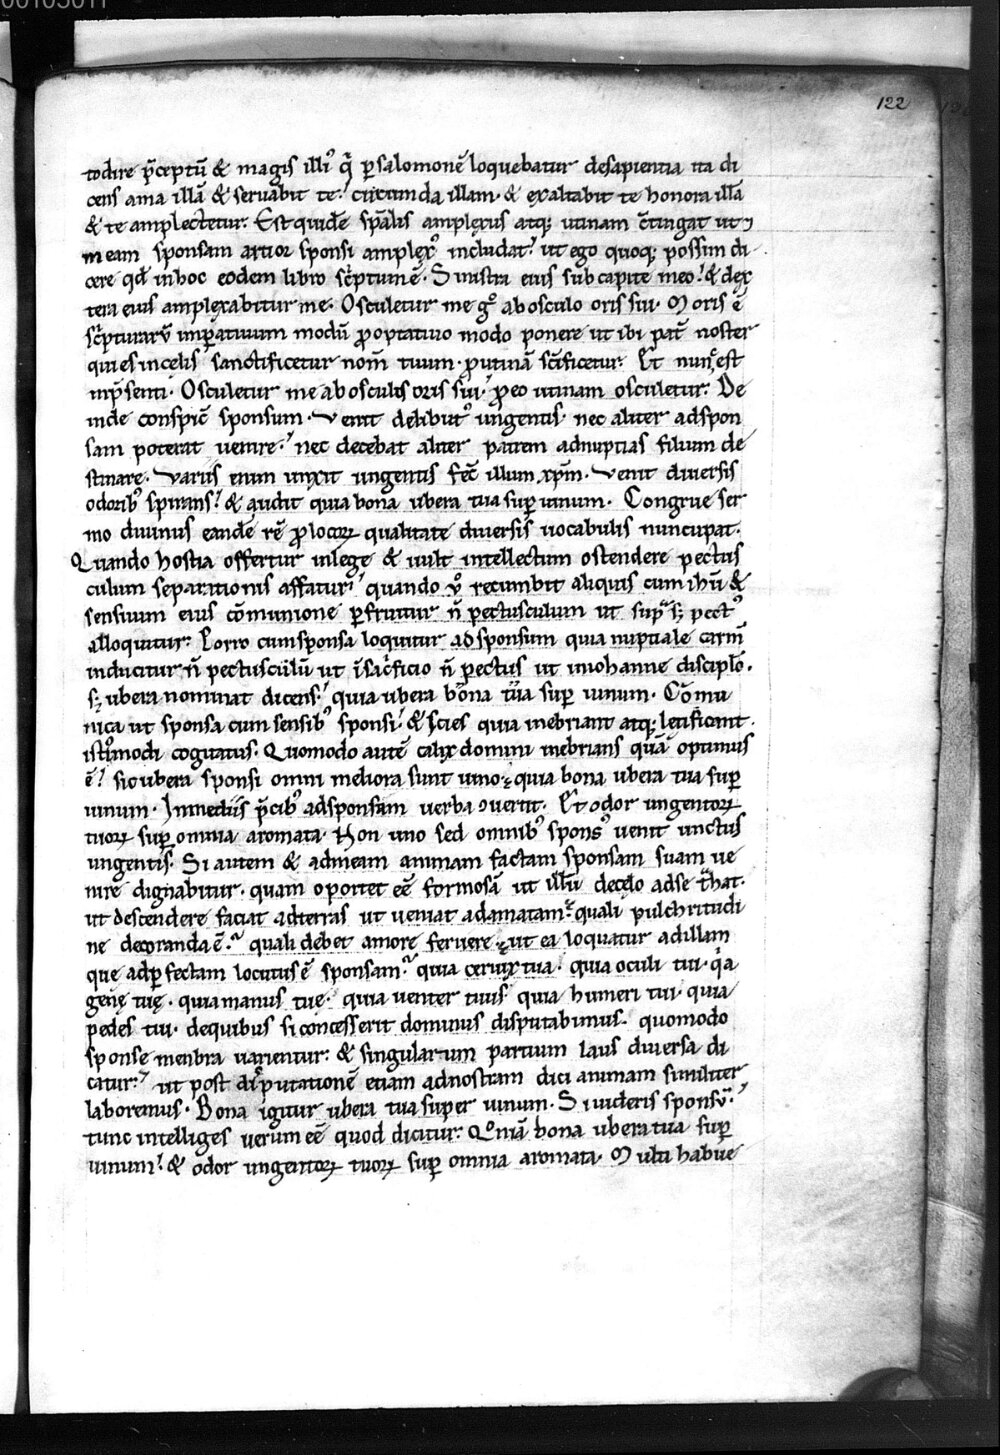 122
todire p̄ceptū & magis illi᾽ q̄ ꝑ salomonē loquebatur desapientia ita di
cens ama illā & seruabit te. circumda illam. & exaltabit te honora illā
& te amplectetur. Est quidē sp̄alis amplexus atq; utinam c̄tingat ut ⁊
meam sponsam artior sponsi amplex᾽ includat. ut ego quoq; possim di
cere qd̄ inhoc eodem libro sc̄ptum ē. Sinistra eius sub capite meo. & dex
tera eius amplexabitur me. Osculetur me gͦ ab osculo oris sui. Moris ē
sc̄pturarū imꝑatiuum modū ꝓ optatiuo modo ponere ut ibi pat̄ noster
qui es incelis sanctificetur nom̄ tuum. ꝓ utinā sc̄ificetur. Et nunc est
inp̄senti. Osculetur me ab osculis oris sui. ꝓ eo utinam osculetur. De
inde conspic̄ sponsum. Venit delibut᾽ ungentis. nec aliter adspon
sam poterat uenire. nec decebat aliter patrem adnuptias filium de
stinare. Variis enim unxit ungentis fec̄ illum xp̄m. Venit diuersis
odorib᾽ spirans. & audit quia bona ubera tua suꝑ uinum. Congrue ser
mo diuinus eandē rē ꝓ locoꝝ qualitate diuersis uocabulis nuncupat.
Quando hostia offertur inlege & uult intellectum ostendere pectus
culum separationis affatur. quando ū recumbit aliquis cum ih̄u &
sensuum eius cōmunione ꝑfruitur n̄ pectusculum ut supra s; pect᾽
alloquitur. Porro cum sponsa loquitur ad sponsum quia nuptiale carm̄
inducitur n̄ pectusculū ut ī sac̄ficio n̄ pectus ut in iohanne discipl̄o.
s; ubera nominat dicens. quia ubera bona tua suꝑ uinum. Cōmu
nica ut sponsa cum sensib᾽ sponsi. & scies quia inebriant atq; letificant
isti᾽modi cogitatus. Quomodo autē calix domini inebrians quā optimus
ē. sic ubera sponsi omni meliora sunt uino. quia bona ubera tua suꝑ
uinum. In mediis p̄cib᾽ adsponsam uerba ↄuertit. Et odor ungentoꝝ
tuoꝝ suꝑ omnia aromata. Non uno sed omnib᾽ spons᾽ uenit unctus
ungentis. Si autem & admeam animam factam sponsam suam ue
nire dignabitur. quam oportet eē formosā ut illū decelo adse t̄hat.
ut descendere faciat adterras ut ueniat adamatam. quali pulchritudi
ne decoranda ē. quali debet amore feruere. ut ea loquatur adillam
que adꝑfectam locutus ē sponsam. quia ceruix tua. quia oculi tui. q̄a
genę tuę. quia manus tuę. quia uenter tuus quia humeri tui. quia
pedes tui. dequibus si concesserit dominus disputabimus. quomodo
sponse menbra uarientur. & singularum partium laus diuersa di
catur. ut post disputationē etiam adnostram dici animam similiter
laboremus. Bona igitur ubera tua super uinum. Si uideris sponsū.
tunc intelliges uerum eē quod dicitur. Qm̄ bona ubera tua suꝑ
uinum. & odor ungentoꝝ tuoꝝ suꝑ omnia aromata. Multi habue